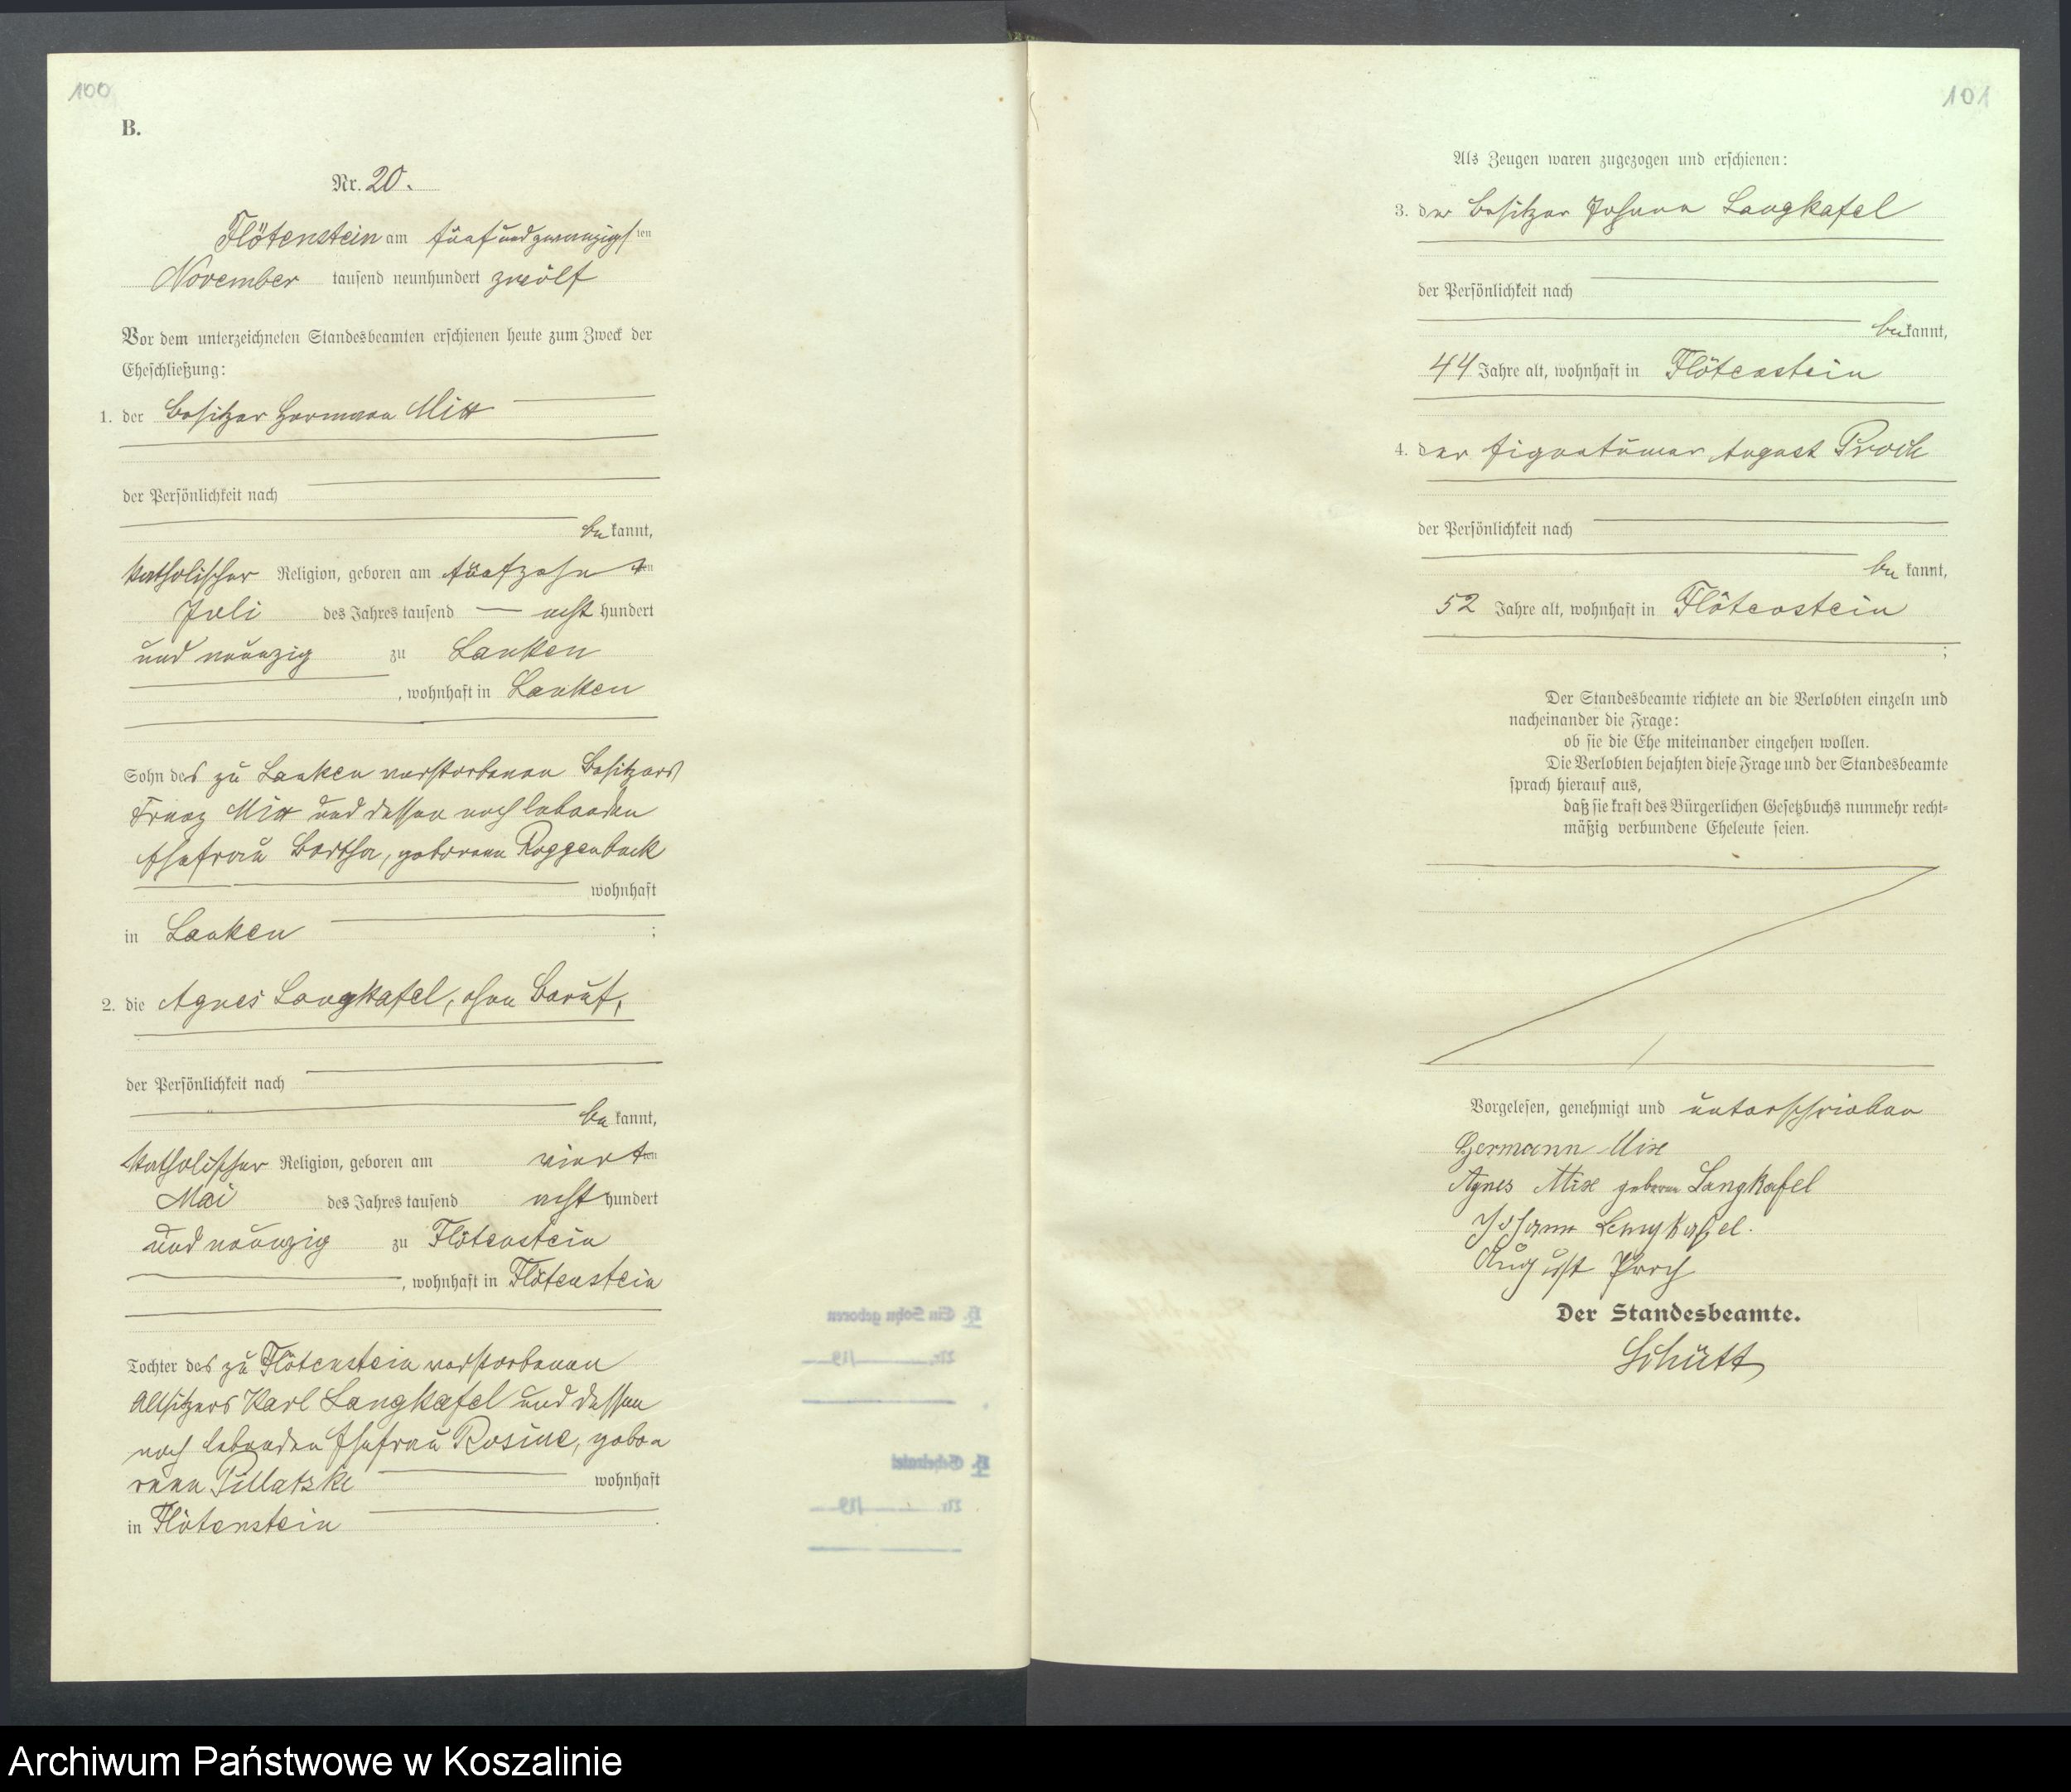 100
B.
Nr. 20.
Flötenstein am fünfundzwanzigsten
November tausend neunhundert zwölf
Vor dem unterzeichneten Standesbeamten erschienen heute zum Zweck der
Eheschließung:
1. der Besitzer Hermann Mix
der Persönlichkeit nach
bekannt,
katholischer Religion, geboren am fünfzehnten
Juli des Jahres tausend — acht hundert
und neunzig zu Lanken
, wohnhaft in Lanken
Sohn des zu Lanken verstorbenen Besitzers
Franz Mix und dessen noch lebenden
Ehefrau Bertha, geborene Roggenbuck
wohnhaft
in Lanken ;
2. die Agnes Langkafel, ohne Beruf,
der Persönlichkeit nach
bekannt,
katholischer Religion, geboren am vierten
Mai des Jahres tausend acht hundert
und neunzig zu Flötenstein
, wohnhaft in Flötenstein
Tochter des zu Flötenstein verstorbenen
Altsitzers Karl Langkafel und dessen
noch lebenden Ehefrau Rosine, gebo=
rene Pillatzke wohnhaft
in Flötenstein .
101
Als Zeugen waren zugezogen und erschienen:
3. der Besitzer Johann Langkafel
der Persönlichkeit nach
bekannt,
44 Jahre alt, wohnhaft in Flötenstein
4. der Eigentümer August Proch
der Persönlichkeit nach
bekannt,
52 Jahre alt, wohnhaft in Flötenstein
;
Der Standesbeamte richtete an die Verlobten einzeln und
nacheinander die Frage:
ob sie die Ehe miteinander eingehen wollen.
Die Verlobten bejahten diese Frage und der Standesbeamte
sprach hierauf aus,
daß sie kraft des Bürgerlichen Gesetzbuchs nunmehr recht=
mäßig verbundene Eheleute seien.
Vorgelesen, genehmigt und unterschrieben
Hermann Mix
Agnes Mix geborene Langkafel
Johann Langkafel.
August Proch
Der Standesbeamte.
Schütt
Archiwum Państwowe w Koszalinie